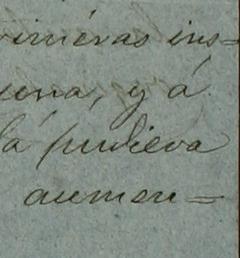 rimeras ins=
una, y á
la pudiera
aumen=